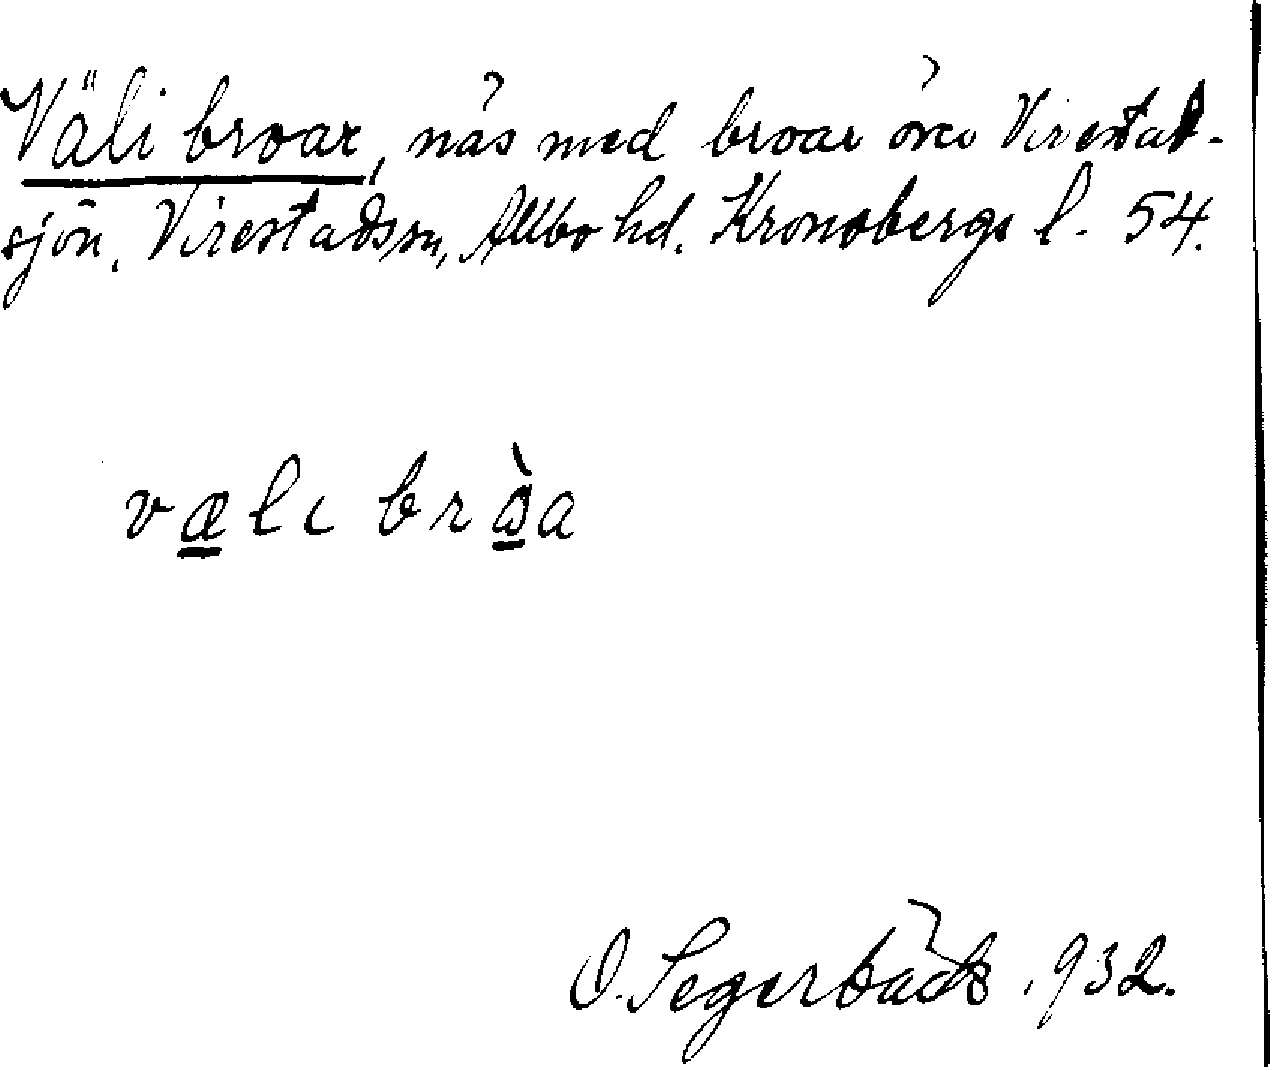 Väli broar, näs med broar över Virestad-
sjön, Virestads sn, Allbo hd. Kronobergs l. 54.
væli bròa
O. Segerbäck 1932.